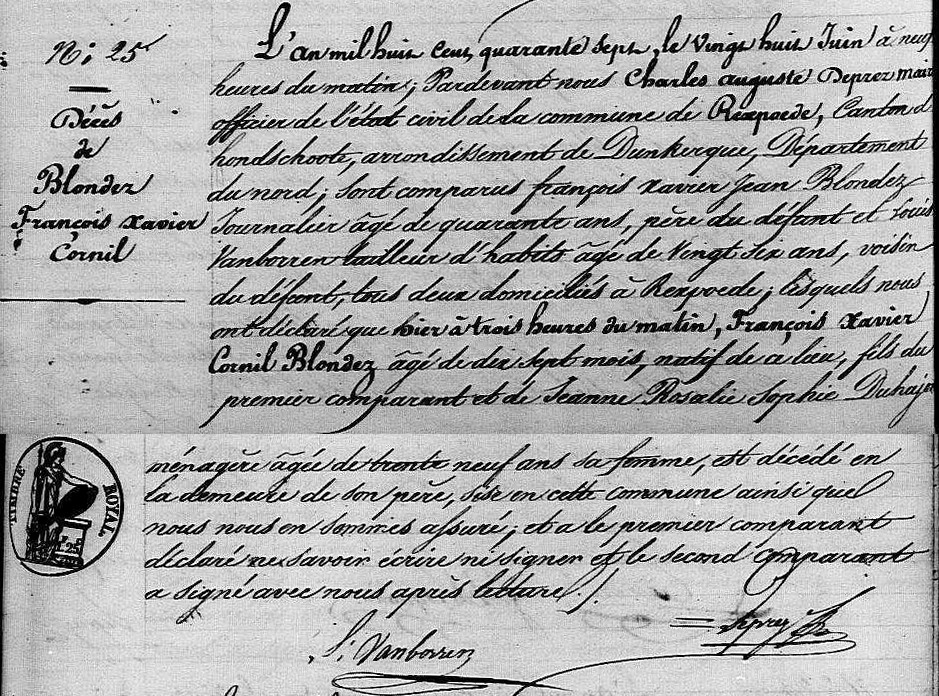 N: 25
Décès
de
Blondez
François Xavier
Cornil
L'an mil huit cent quarante sept, le vingt huit Juin à neuf
heures du matin; Pardevant nous Charles auguste Deprez maire
officier de l'état civil de la commune de Rexpoede, Canton d
hondschoote, arrondissement de Dunkerque, Département
du nord; sont comparus françois xavier Jean Blondez
Journalier âgé de quarante ans, père du défunt et Louis
Vanborren tailleur d'habits âgé de vingt six ans, voisin
du défunt, tous deux domiciliés à Rexpoede; lesquels nous
ont déclaré que hier à trois heures du matin, François Xavier
Cornil Blondez âgé de dix sept mois, natif de ce lieu, fils du
premier comparant et de Jeanne Rosalie Sophie
ménagère âgée de trente neuf ans sa femme, est décédé en
la demeure de son père, sise en cette commune ainsi que
nous nous en sommes assuré; et a le premier comparant
déclaré ne savoir écrire ni signer et le second comparant
a signé avec nous après lecture./.
TIMBRE ROYAL
Deprez
L: Vanborren